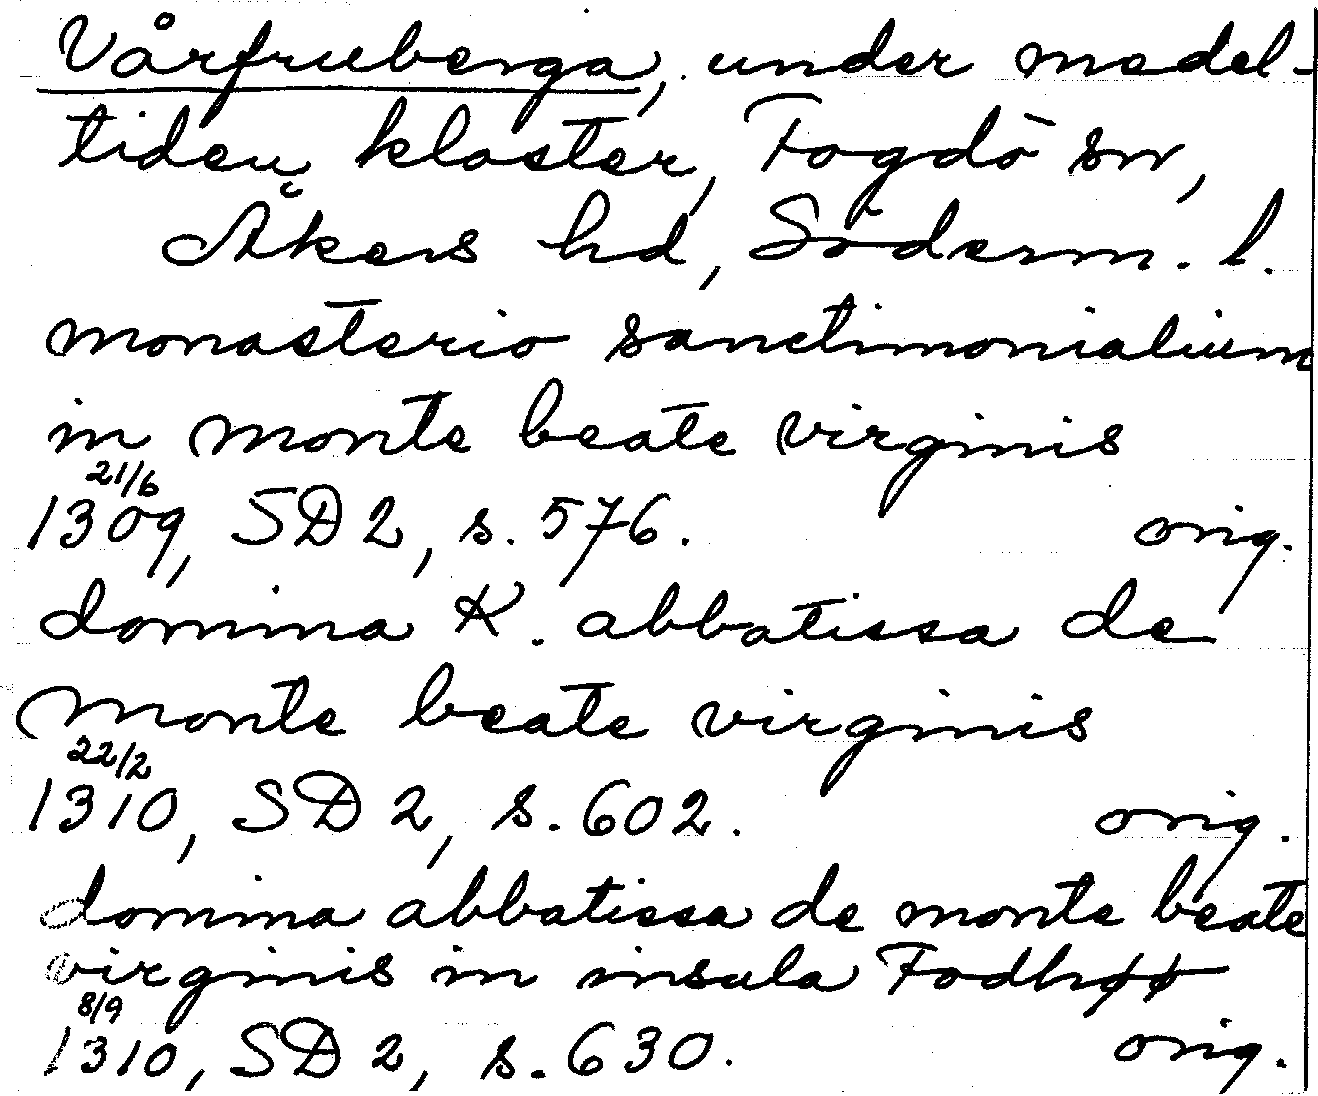 Vårfruberga, under medel-
tiden kloster, Fogdö sn,
Åkers hd, Söderm. l.
monasterio sanctimonialium
in monte beate virginis
21/6
1309, SD 2, s. 576. orig.
domina K. abbatissa de
monte beate virginis
22/2
1310, SD 2, s. 602. orig.
domina abbatissa de monte beate
virginis in insula Fodhøø
8/9
1310, SD 2, s. 630. orig.